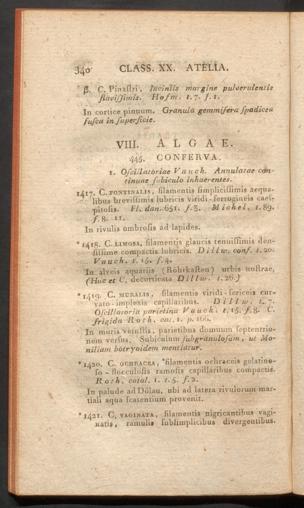 340 CLASS. XX. ATELIA.
β. C. Pinastri. laciniis margine pulverulentis
flavissimis. Hoffm. t. 7. f. 1.
In cortice pinuum. Granula gemmifera spadicea
fusca in superficie.
VIII. ALGAE.
445. CONFERVA.
1. Oscillatoriae Vauch. Annulatae con-
tinuae subiculo inhaerentes.
1417. C. FONTINALIS, filamentis simplicissimis aequa-
libus brevissimis lubricis viridi-ferrugineis caes-
pitosis. Fl. dan. 651. f. 3. Michel. t. 89.
f. 8. 11.
In rivulis umbrosis ad lapides.
*1418. C. LIMOSA, filamentis glaucis tenuissimis den-
sissime compactis lubricis. Dillw. conf. t. 20.
Vauch. t. 15. f. 4.
In alveis aquariis (Röhrkasten) urbis nostrae,
(Huc et C. decorticata Dillw. t. 26.)
*1419. C. MURALIS, filamentis viridi-sericeis cur-
vato-implexis capillaribus. Dillw. t. 7.
Oscillatoria parietina Vauch. t. 15. f. 8. C.
frigida Roth. cat. 1. p. 166.
In muris vetustis, parietibus domuum septentrio-
nem versus. Subiculum subgranulosum, ut Mo-
niliam botryoidem mentiatur.
*1420. C. OCHRACEA, filamentis ochraceis gelatino-
so-flocculosis ramosis capillaribus compactis.
Roth. catal. 1. t. 5. f. 2.
In palude ad Dölau, ubi ad latera rivulorum mar-
tiali aqua scatentium provenit.
*1421. C. VAGINATA, filamentis nigricantibus vagi-
natis, ramulis subsimplicibus divergentibus.